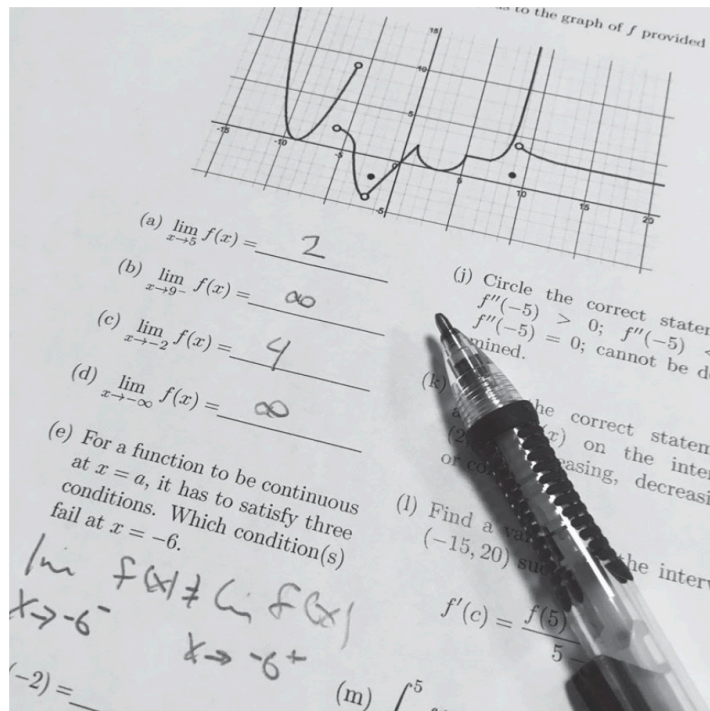 to the graph of f provided
15
10
5
-15
-10
-5
0
5
10
15
20
-5
(a) lim x→5 f(x) = 2
(b) lim x→9⁻ f(x) = ∞
(c) lim x→-2 f(x) = 4
(d) lim x→-∞ f(x) = ∞
(e) For a function to be continuous
at x = a, it has to satisfy three
conditions. Which condition(s)
fail at x = -6.
lim f(x) ≠ lim f(x)
x→-6⁻ x→-6⁺
(-2) =
(j) Circle the correct
f″(-5) > 0; f″(-5) <
f″(-5) = 0; cannot be
mined.
(k)
the correct
(x) on the
or
(l) Find a
(-15, 20)
the
f′(c) = f(5)
5
(m) ∫⁵